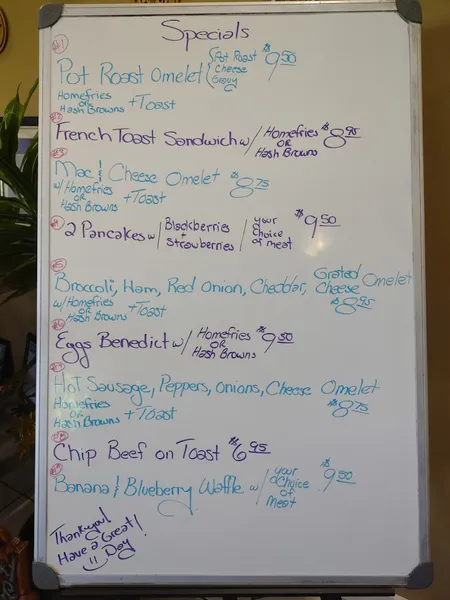 Specials
#1
Pot Roast Omelet (Pot Roast Cheese Gravy $9.50
Homefries OR Hash Browns + Toast
#2
French Toast Sandwich w/ Homefries OR Hash Browns $8.95
#3
Mac & Cheese Omelet $8.75
w/ Homefries OR Hash Browns + Toast
#4
2 Pancakes w/ Blackberries + Strawberries / your Choice of meat $9.50
#5
Broccoli, Ham, Red Onion, Cheddar, Grated Cheese Omelet
w/ Homefries OR Hash Browns + Toast $8.95
#6
Eggs Benedict w/ Homefries OR Hash Browns $9.50
#7
Hot Sausage, Peppers, Onions, Cheese Omelet
Homefries OR Hash Browns + Toast $8.75
#8
Chip Beef on Toast $6.95
#9
Banana & Blueberry Waffle w/ your Choice of meat $9.50
Thank you!
Have a Great!
Day